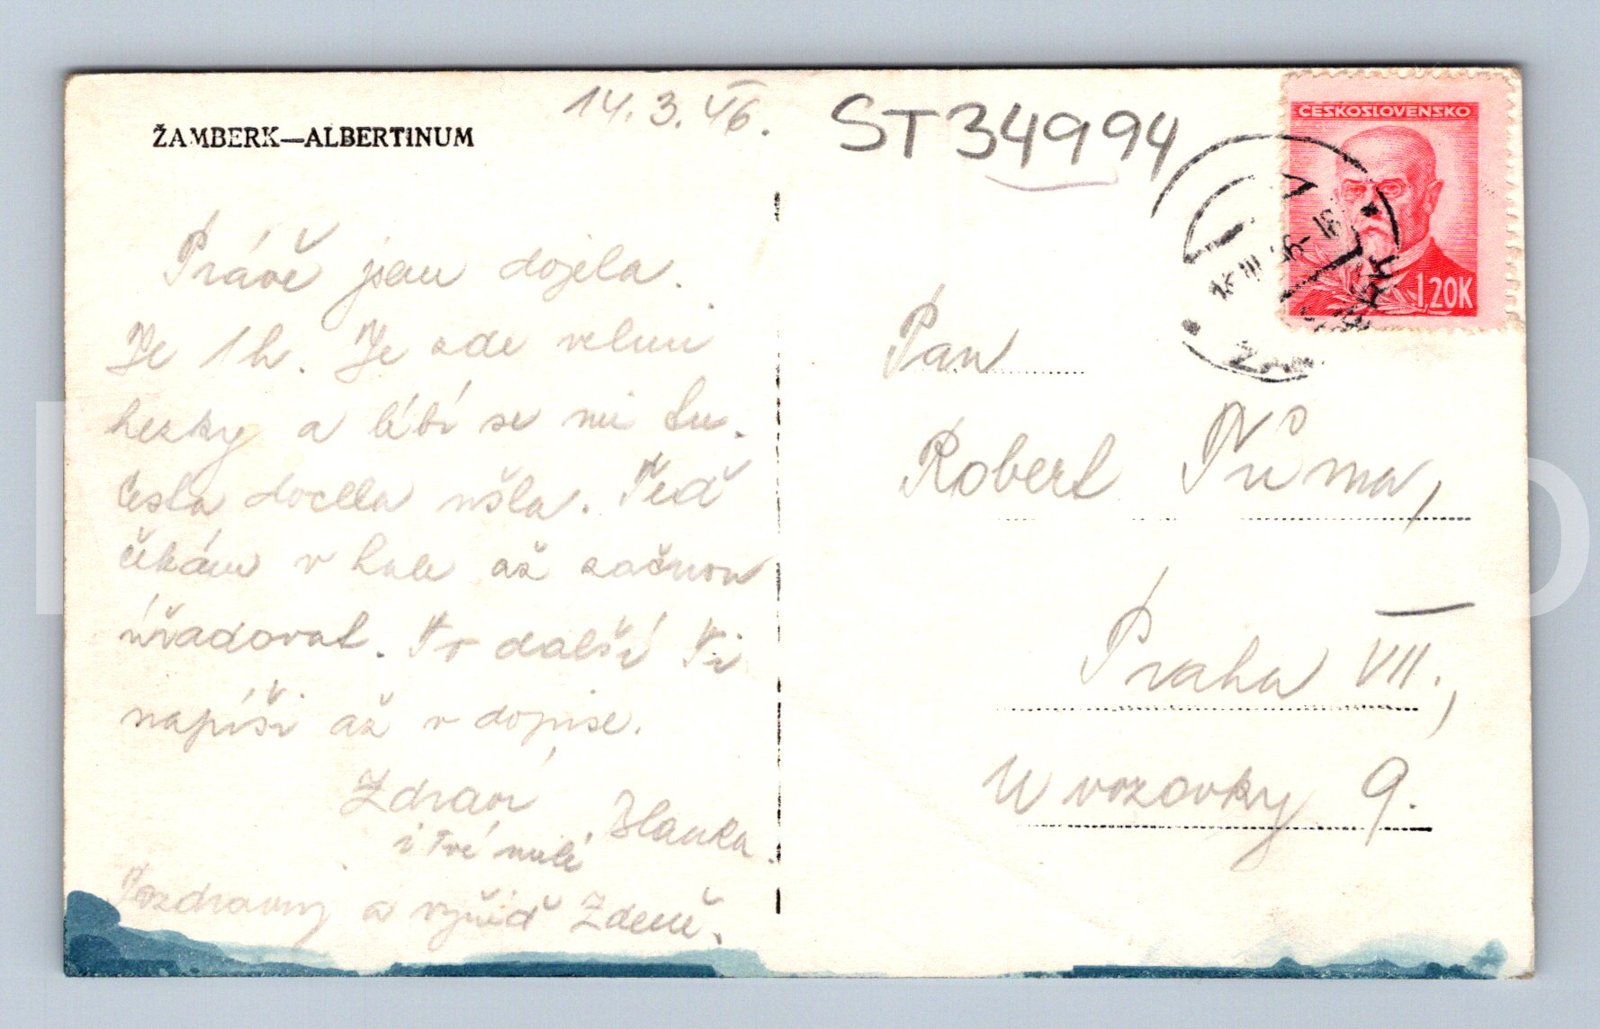 14.3.46.
ST34994
ŽAMBERK—ALBERTINUM
ČESKOSLOVENSKO
1,20K
Právě jsem dojela.
Je 1 h. Je zde velmi
hezky a líbí se mi tu.
Cesta docela ušla. Teď
čekám v hale až začnou
úřadovat. To další Ti
napíši až v dopise.
Zdraví Blanka.
i Tvé milé
Pozdravuj a vyřiď Zdeně.
Pan
Robert Tůma,
Praha VII.,
U vozovky 9.